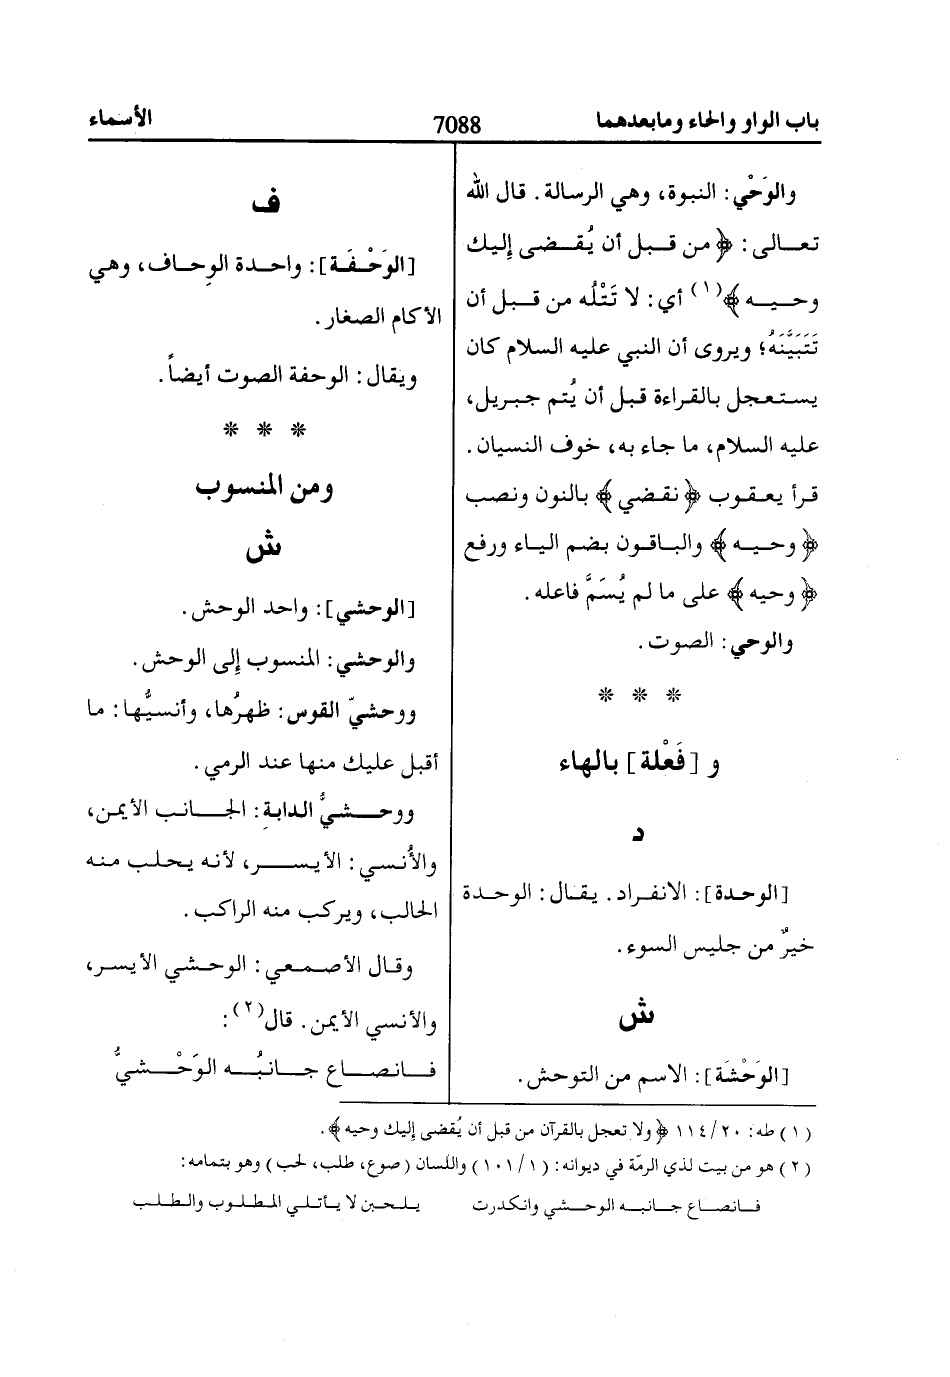 باب الواو والحاء ومابعدهما
7088
الأسماء
والوَحْي: النبوة، وهي الرسالة. قال الله
تعالى: ﴿من قبل أن يُقضى إليك
وحيه﴾(١) أي: لا تَتْلُه من قبل أن
تَتَبَيَّنَهُ؛ ويروى أن النبي عليه السلام كان
يستعجل بالقراءة قبل أن يُتم جبريل،
عليه السلام، ما جاء به، خوف النسيان.
قرأ يعقوب ﴿نقضي﴾ بالنون ونصب
﴿وحيه﴾ والباقون بضم الياء ورفع
﴿وحيه﴾ على ما لم يُسَمَّ فاعله.
والوحي: الصوت.
* * *
و [فَعْلة] بالهاء
د
[الوحدة]: الانفراد. يقال: الوحدة
خيرٌ من جليس السوء.
ش
[الوَحْشَة]: الاسم من التوحش.
ف
[الوَحْفَة]: واحدة الوِحاف، وهي
الأكام الصغار.
ويقال: الوحفة الصوت أيضاً.
* * *
ومن المنسوب
ش
[الوحشي]: واحد الوحش.
والوحشي: المنسوب إلى الوحش.
ووحشيّ القوس: ظهرُها، وأنسيُّها: ما
أقبل عليك منها عند الرمي.
ووحشيُّ الدابةِ: الجانب الأيمن،
والأُنسي: الأيسر، لأنه يحلب منه
الحالب، ويركب منه الراكب.
وقال الأصمعي: الوحشي الأيسر،
والأنسي الأيمن. قال(٢):
فانصاع جانبُه الوَحْشيُّ
(١) طه: ١١٤/٢٠ ﴿ولا تعجل بالقرآن من قبل أن يُقضى إليك وحيه﴾.
(٢) هو من بيت لذي الرمّة في ديوانه: (١٠١/١) واللسان (صوع، طلب، لحب) وهو بتمامه:
فانصاع جانبه الوحشي وانكدرت يلحبن لا يأتلي المطلوب والطلب